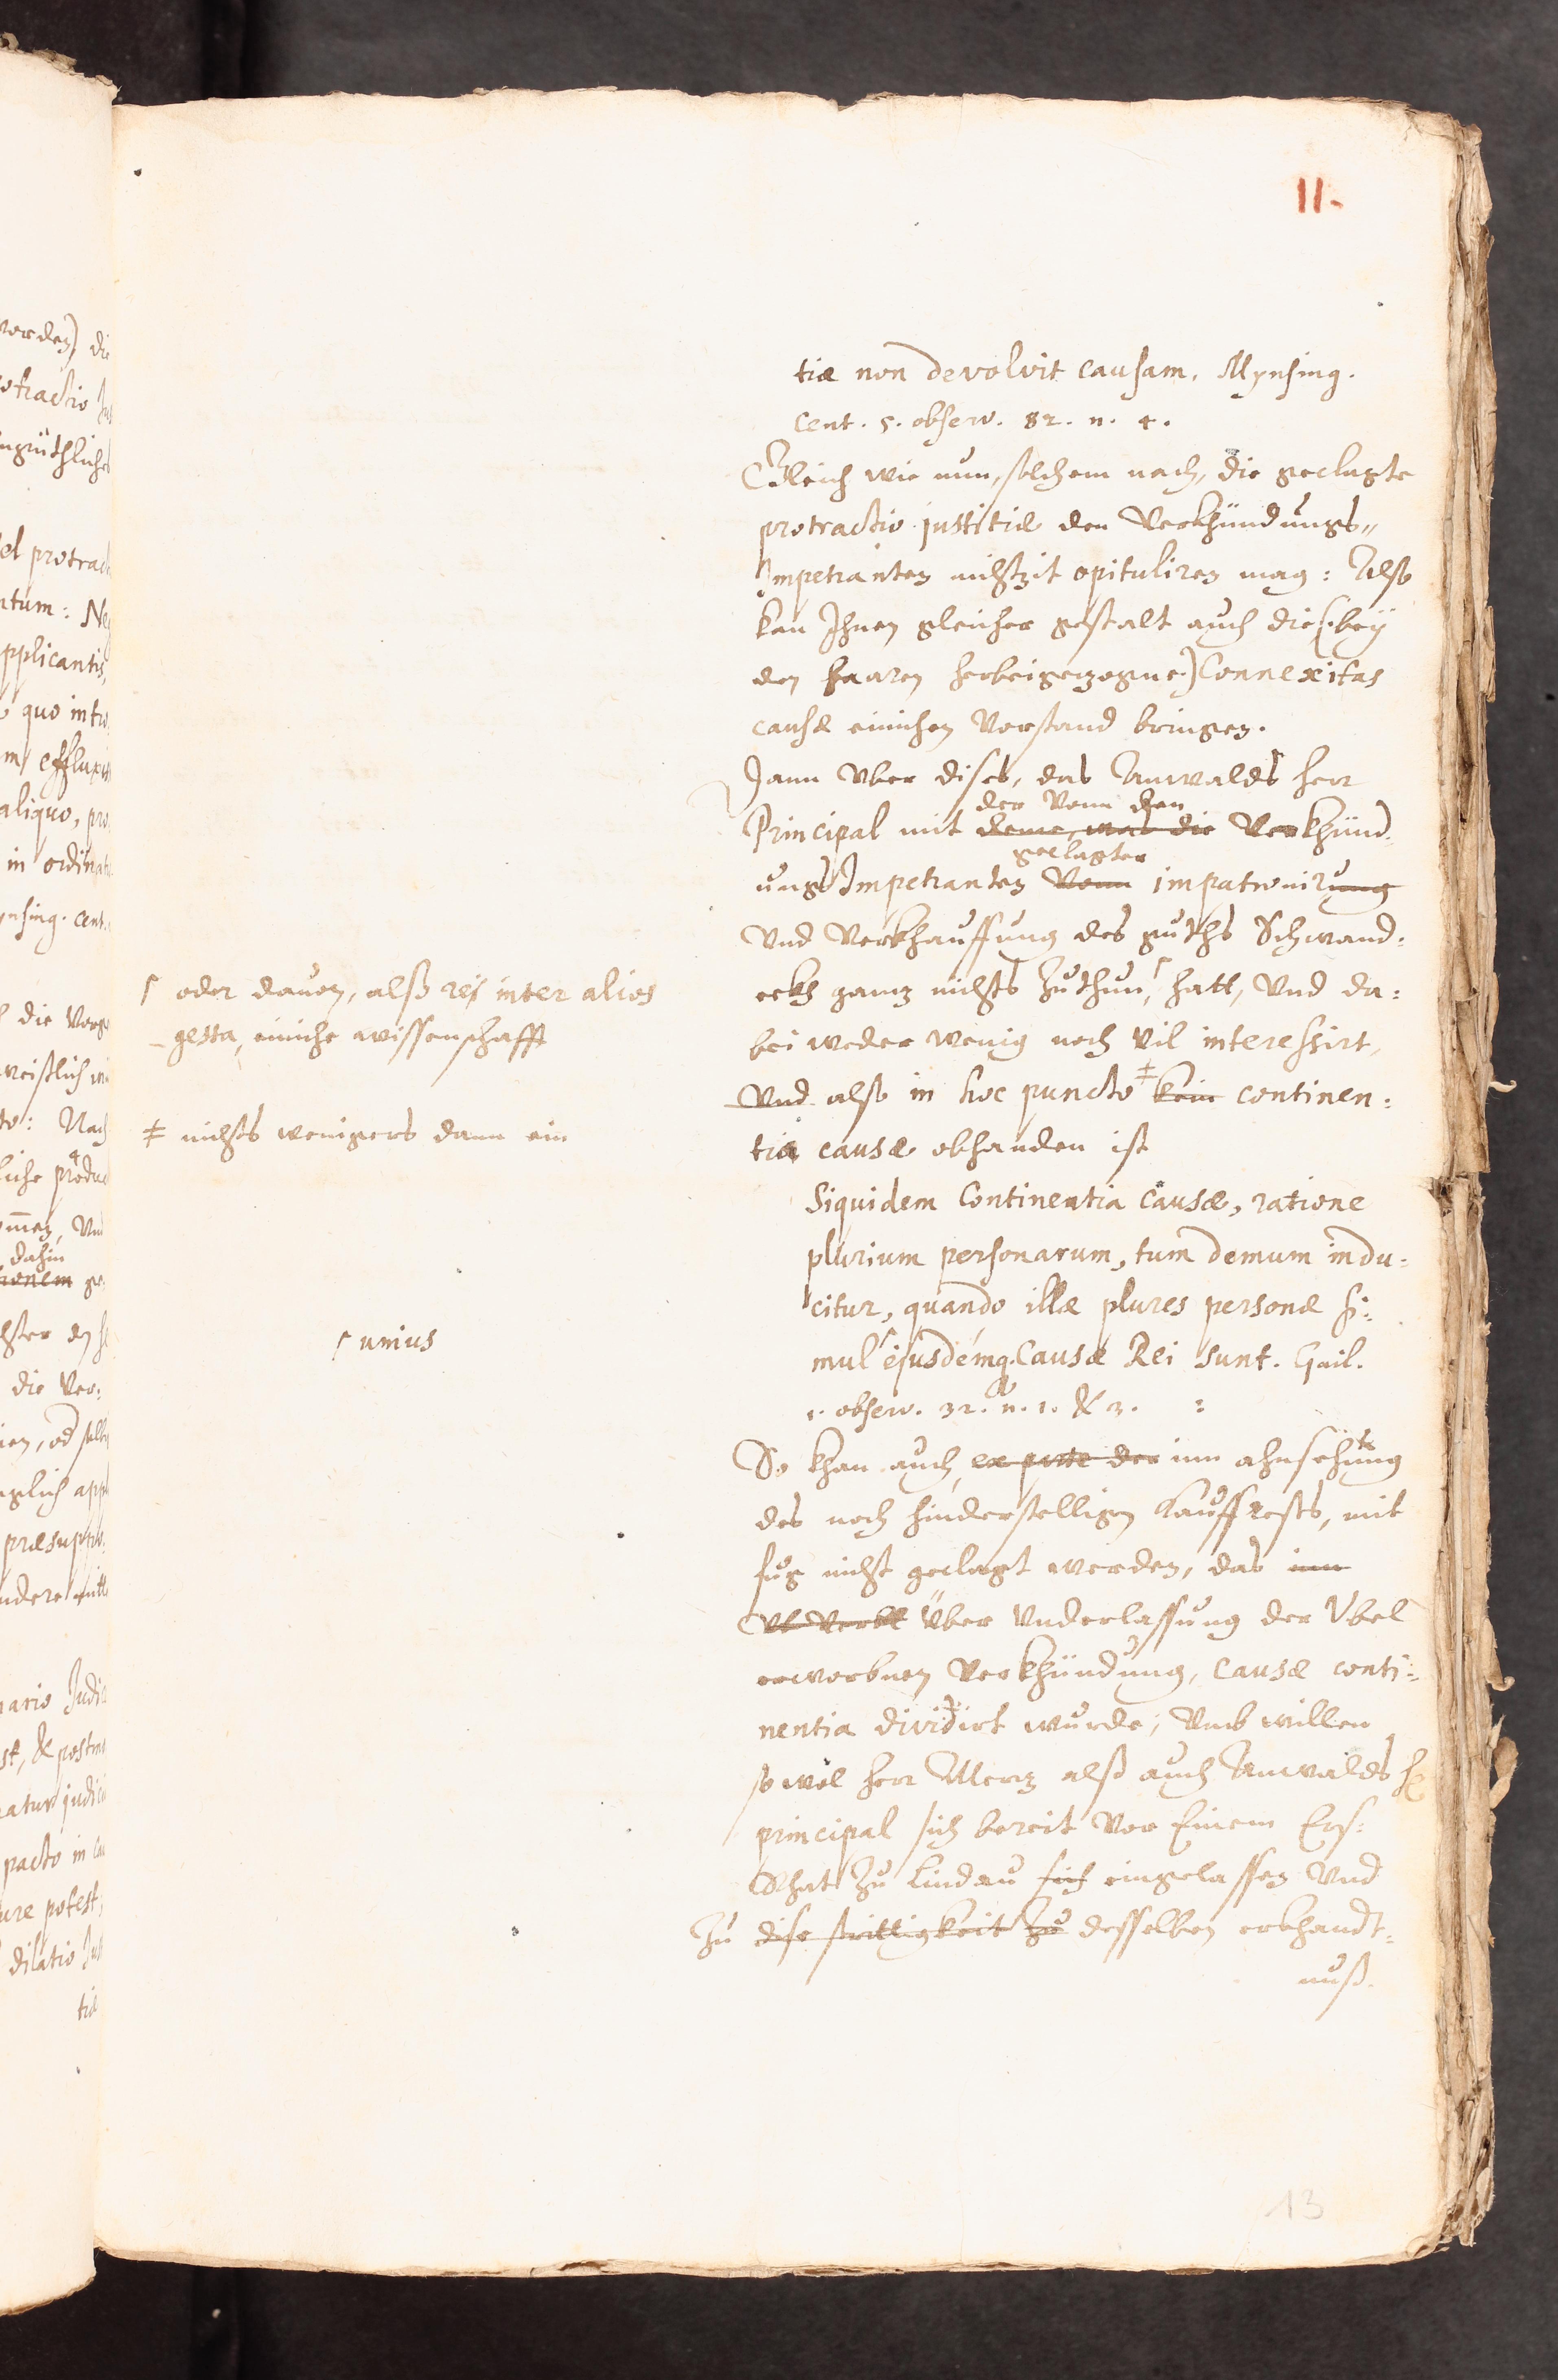 11.
tiæ non devolvit causam. Mynsing.
Cent. 5. observ. 82. n. 4.
Gleich wie nun, solchem nach, die geclagte
protractio justitiæ den Verkhündungs„
Impetranten nichtzit opituliren mag: Also
kan Ihnen gleicher gestalt auch die (: bey
den haaren herbeigezogne:) Connexitas
causæ einichen Vorstand bringen.
Dann Vber dises, das Anwalds herr
der Vonn den
Principal mit deme, was die Verkhünd„
geclagter
ungs Impetranten Vonn impatronirung
Vnd Verkhauffung des guths Schwand:
eckh ganz nichts Zuthun, hatt, Vnd da:
bei weder wenig noch vil interessirt,
Vnd also in hoc puncto ‡ kein continen:
tia causæ obhanden ist
Siquidem Continentia Causæ, ratione
plurium personarum, tum demum indu:
citur, quando illæ plures personæ si:
mul ejusdemq. Causæ Rei sunt. Gail.
1. observ. 32. n. 1. & 3.
So khan auch ex parte der inn ahnsehung
des noch hinderstelligen Kauffrests, mit
fug nicht geclagt werden, das inn
über Vnderlassung der Vbel
erworbnen Verkhündung, causæ conti:
nentia dividirt wurde; Vmb willen
so wol herr Merz alß auch Anwalds h
principal sich bereit Vor Einem Ers:
Rhat Zu Lindau sich eingelassen Vnd
Zu dise strittigkeit Zu desselben erkhandt:
nuß.
oder davon, alß res inter alios
gesta, einiche wissenschafft
‡ nichts wenigers dann ein
unius
13